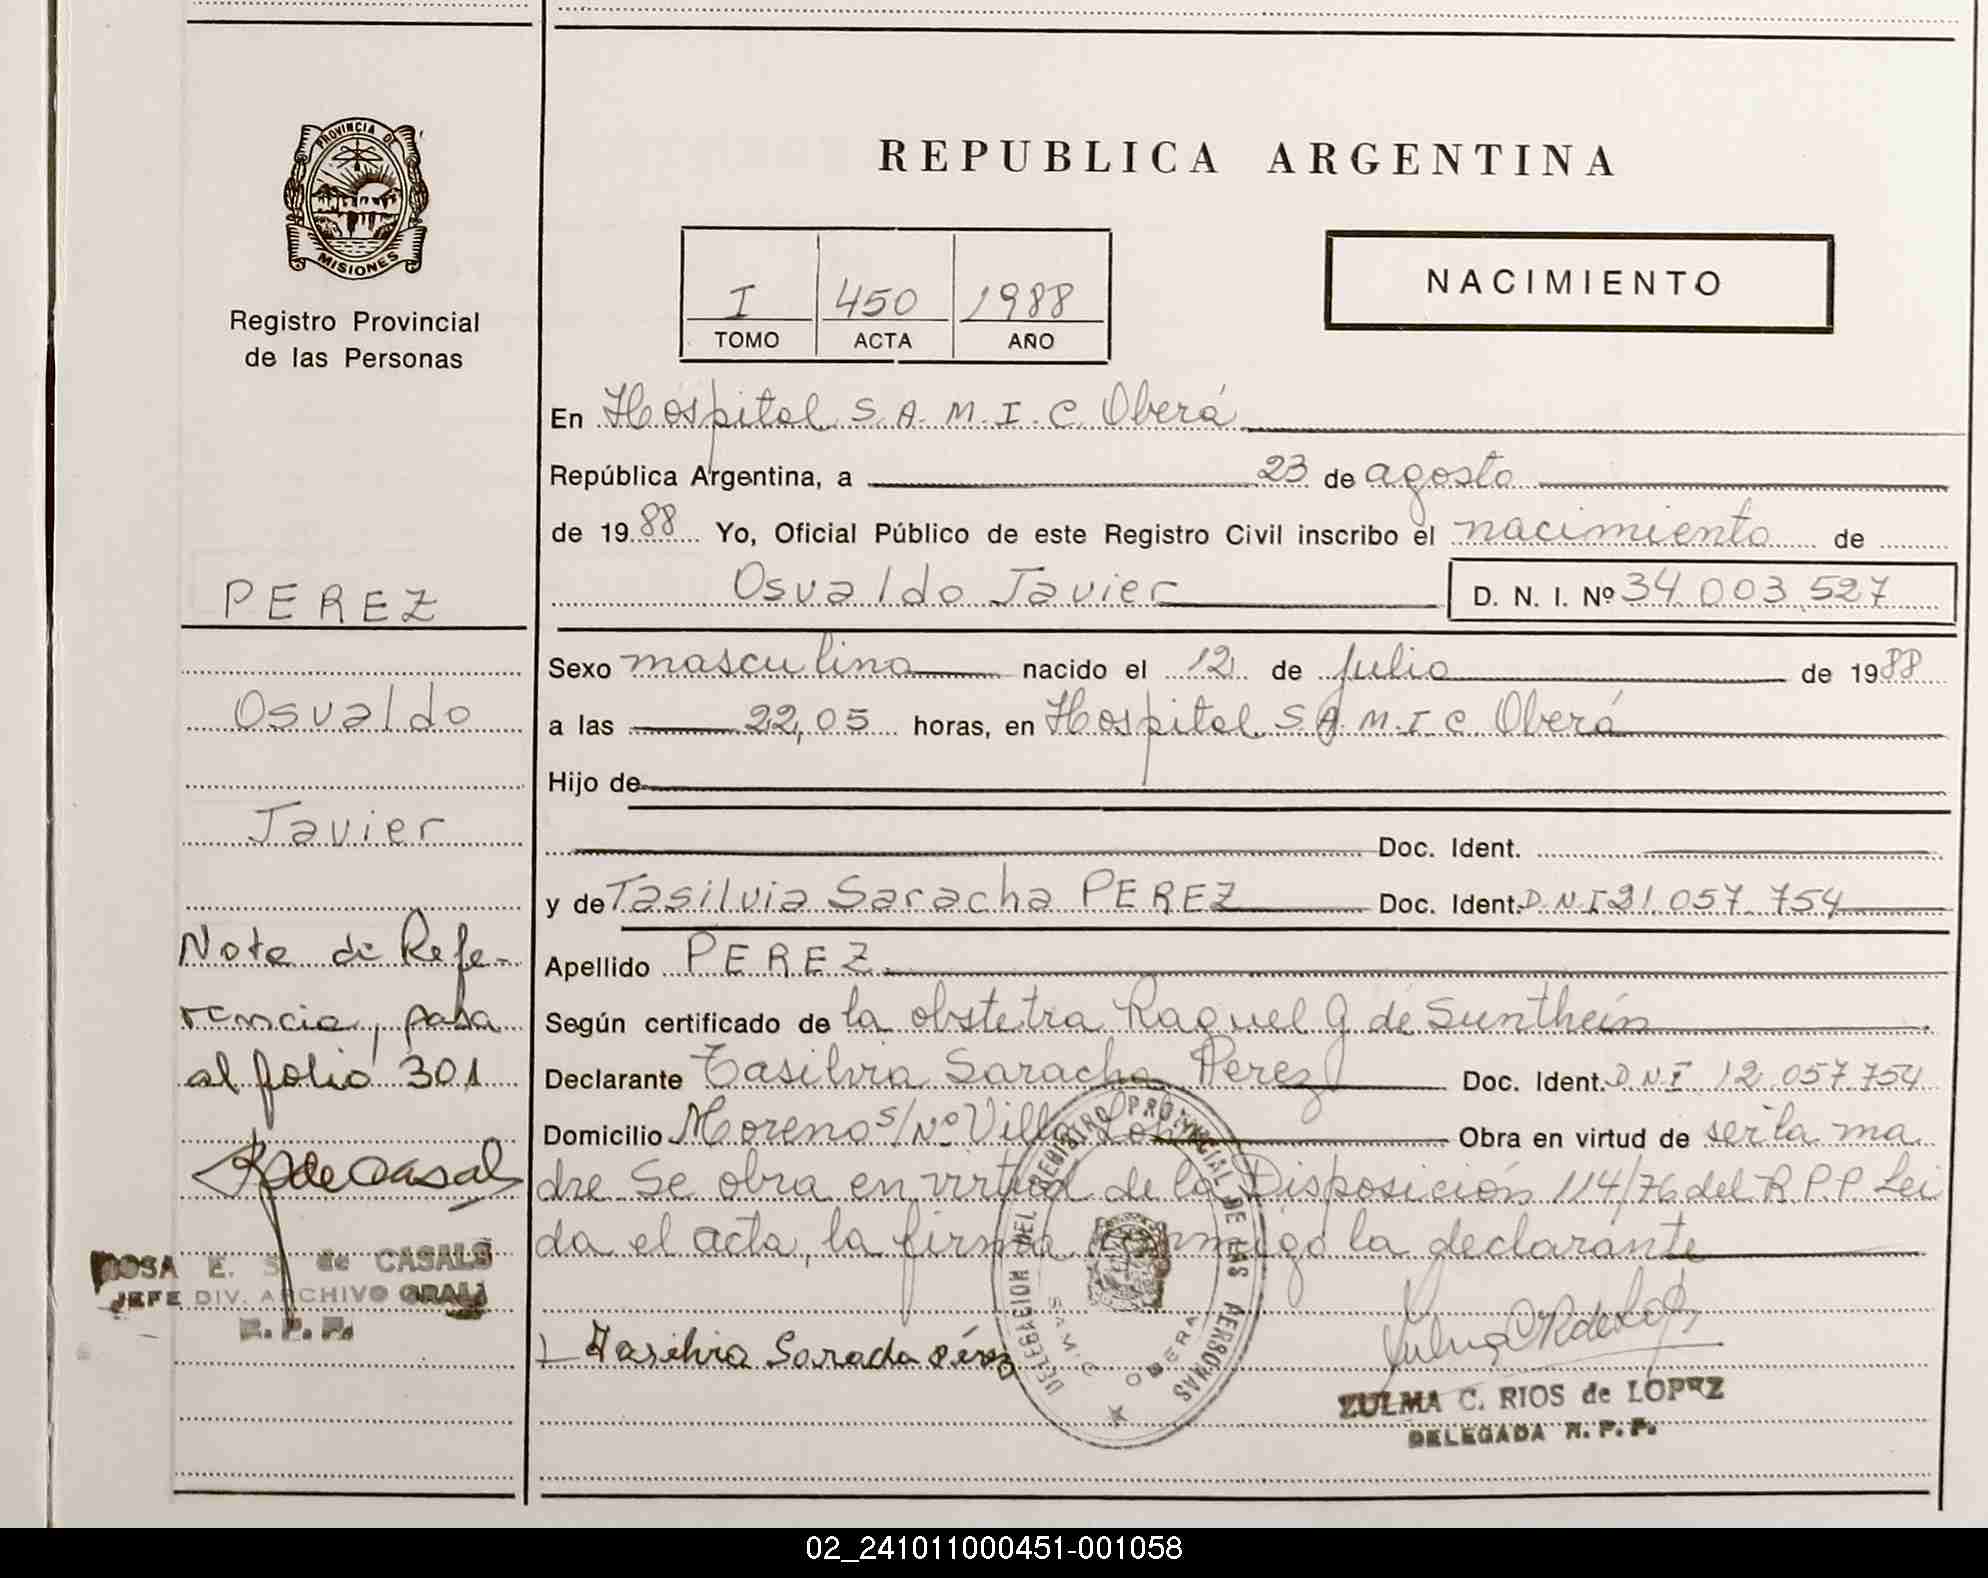 PROVINCIA DE
MISIONES
Registro Provincial
de las Personas
REPUBLICA ARGENTINA
I 450 1988
TOMO ACTA AÑO
NACIMIENTO
En Hospital S.A.M.I.C. Oberá
República Argentina, a 23 de agosto
de 1988 Yo, Oficial Público de este Registro Civil inscribo el nacimiento de
Osvaldo Javier D. N. I. Nº 34.003.527
PEREZ
Osvaldo
Javier
Nota de Refe-
rencia, pasa
al folio 301
ROSA E. S. de CASALS
JEFE DIV. ARCHIVO GRAL.
R. P. P.
Sexo masculino nacido el 12 de julio de 1988
a las 22,05 horas, en Hospital S.A.M.I.C. Oberá
Hijo de
Doc. Ident.
y de Tasilvia Saracha PEREZ Doc. Ident. D.N.I 21.057.754
Apellido PEREZ
Según certificado de la obstetra Raquel G de Sunthein
Declarante Tasilvia Saracha Perez Doc. Ident. D.N.I 12.057.754
Domicilio Moreno s/Nº Villa Obra en virtud de ser la ma
dre Se obra en virtud de la Disposición 114/76 del R.P.P. Lei
da el acta, la firma conmigo la declarante
Tasilvia Saracha Pérez
DELEGACION DEL REGISTRO PROVINCIAL DE LAS PERSONAS
SAMIC OBERA
ZULMA C. RIOS de LOPEZ
DELEGADA R. P. P.
02_241011000451-001058